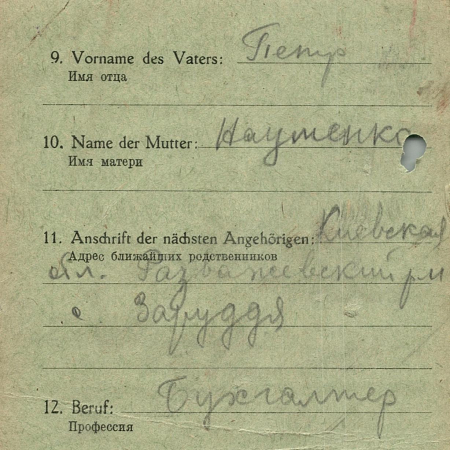 9. Vorname des Vaters: Петр
Имя отца
10. Name der Mutter: Науменко
Имя матери
11. Anschrift der nächsten Angehörigen: Киевская
Адрес ближайших родственников
обл. Розважевский р-н
с Заруддя
12. Beruf: Бухгалтер
Профессия